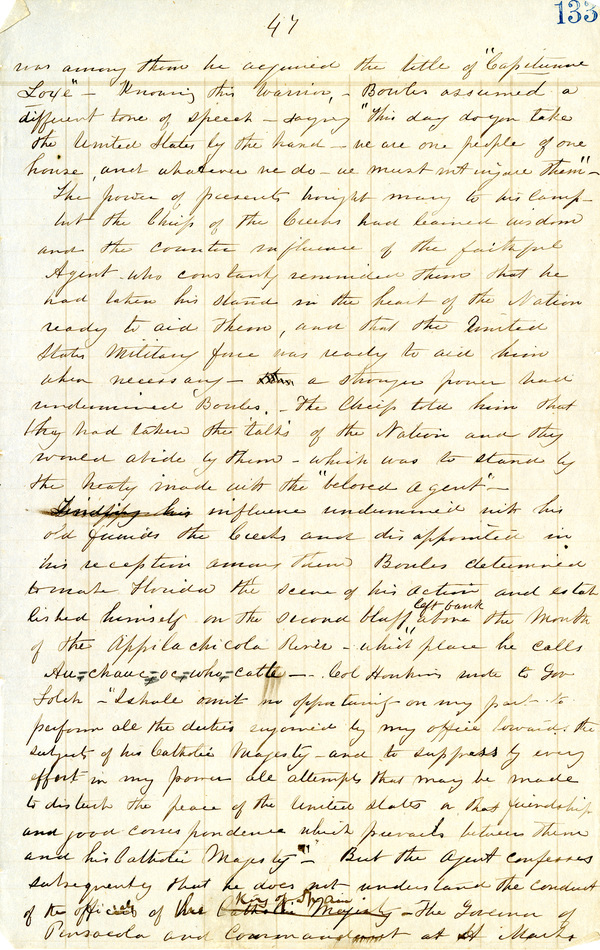 133
47
was "among them he acquired the title of "Capitenne
Loxe" — Knowing this warrior, — Bowles assumed a
different tone of speech — saying "This day do you take
the United States by the hand — we are one people of one
house, and whatever we do — we must not injure them" —
The power of presents bought many to his camp —
but the Chiefs of the Creeks had learned wisdom
and the counter influence of the faithful
Agent who constantly reminded them that he
had taken his stand in the heart of the Nation
ready to aid them, and that the United
States Military force was ready to aid him
when necessary — a stronger power had
undermined Bowles. — The Chiefs told him that
they had taken the talks of the Nation and they
would abide by them — which was to stand by
the treaty made with the "beloved agent" —
Finding his influence undermined with his
old friends the Creeks and disappointed in
his reception among them Bowles determined
to make Florida the scene of his action and estab
lished himself on the second bluff left bank above the Mouth
of the Appilachicola River — which place he calls
Au-chauc-oc-who-catte — Col Hawkins wrote to Gov
Folch — "I shall omit no opportunity on my part to
perform all the duties enjoined by my office towards the
subjects of his Catholic Majesty — and to suppress by every
effort in my power all attempts that may be made
to disturb the peace of the United States or that friendship
and good correspondence which prevails between them
and his Catholic Majesty" — But the Agent confesses
subsequently that he does not understand the conduct
of the officers of the King of Spain Catholic Majesty — The Governor of
Pensacola and Commandant at St Marks